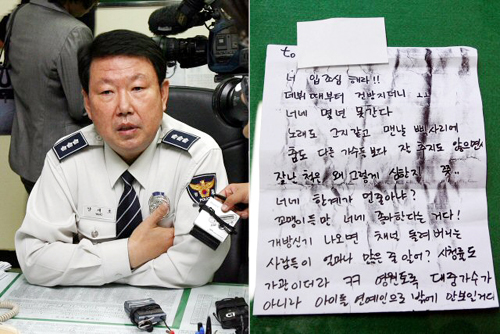 to
너 입조심 해라!!
데뷔 때부터 건방지더니 ㅗㅗ
너네 몇년 못간다
노래도 그지같고 맨날 삐사리에
춤도 다른 가수들보다 잘 추지도 않으면서
잘난 척은 왜 그렇게 심한지 쯧..
너네 한계가 먼줄아냐?
꼬맹이들만 너네 좋아한다는 거다!
개방신기 나오면 채널 돌려버리는
사람들이 얼마나 많은 줄 알어? 시청률도
가관이더라 ㅋㅋ 영원토록 대중가수가
아니라 아이돌 연예인으로 밖에 안보일거다